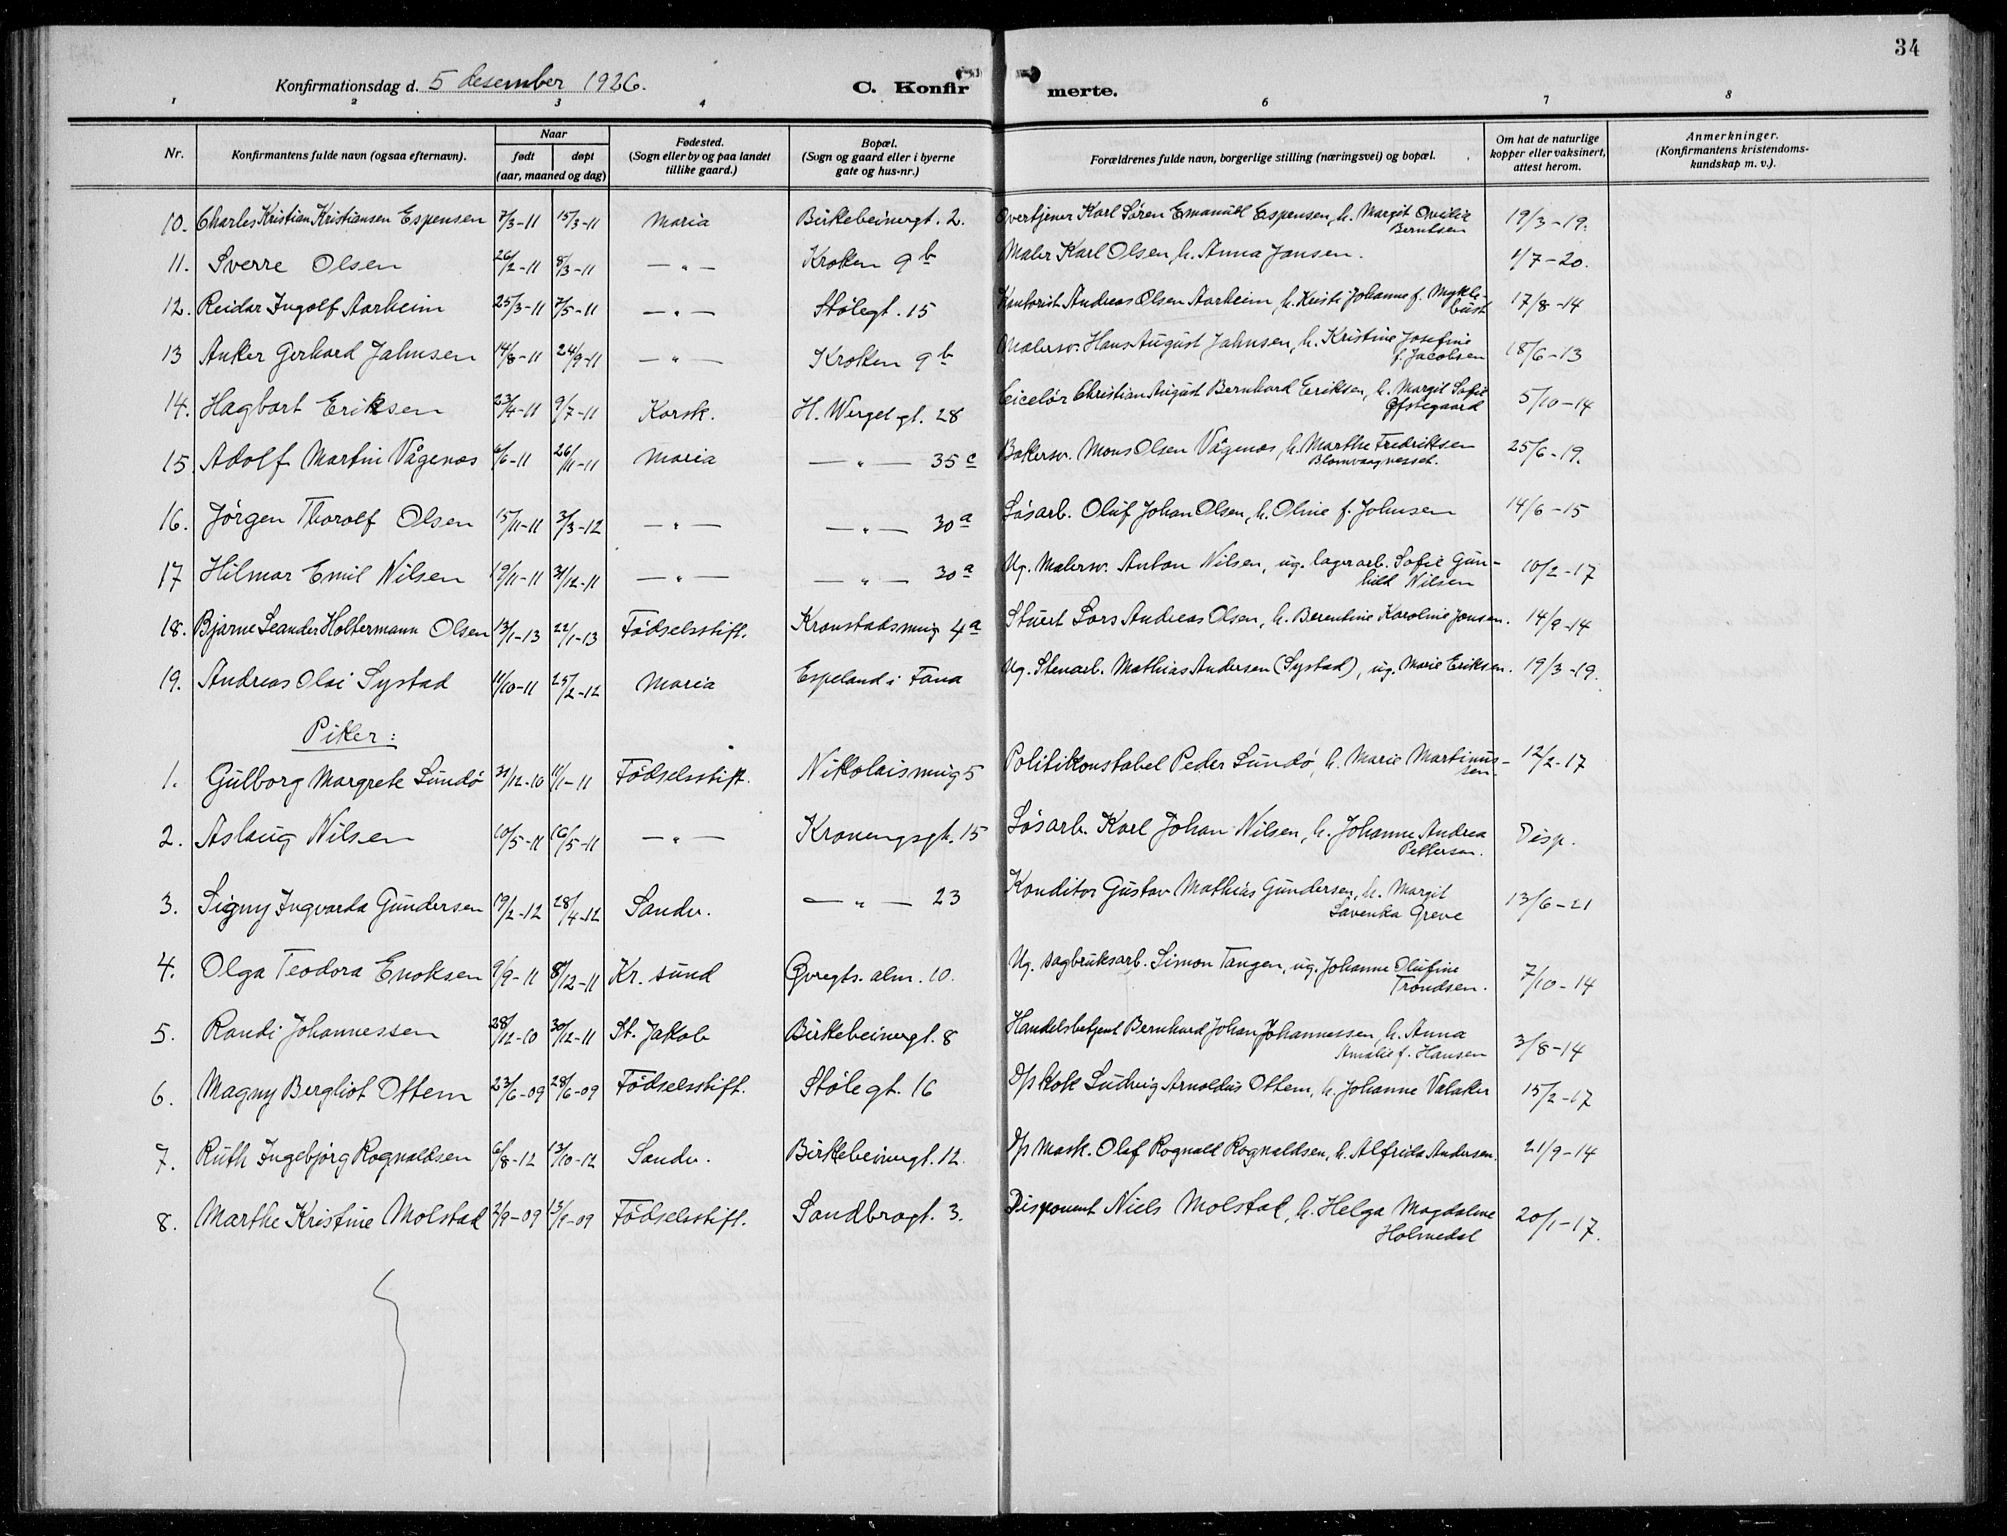 34
Konfirmationsdag d. 5 desember 1926. C. Konfirmerte.
1 2 3 4 6 7 8
Nr. Konfirmantens fulde navn (ogsaa efternavn). Naar født døpt (aar, maaned og dag) Fødested. (Sogn eller by og paa landet tillike gaard.) Bopæl. (Sogn og gaard eller i byerne gate og hus-nr.) Forældrenes fulde navn, borgerlige stilling (næringsvei) og bopæl. Om hat de naturlige kopper eller vaksinert, attest herom. Anmerkninger. (Konfirmantens kristendoms-kundskap m. v.).
10. Charles Kristian Kristiansen Espensen 7/3-11 15/3-11 Maria Birkebeinergt. 2. Overtjener Karl Sören Emanuel Espensen, h. Margit Ovilie Berntsen 19/3-19.
11. Sverre Olsen 26/2-11 8/3-11 —"— Kroken 9b Maler Karl Olsen, h. Anna Jansen. 1/7-20.
12. Reidar Ingolf Aarheim 25/3-11 7/5-11 —"— Stölegt. 15 Kontorist Andreas Olsen Aarheim, h. Kristi Johanne f. Myklebust 17/8-14
13 Anker Gerhard Jahnsen 14/8-11 24/9-11 —"— Kroken 9b Malersv. Hans August Jahnsen, h. Kristine Josefine f. Jacobsen 18/6-13
14. Hagbart Eriksen 23/4-11 9/7-11 Korsk. H. Wergel.gt. 28 Ciselör Christian August Bernhard Eriksen, h. Margit Sofie Øfstegaard 5/10-14
15. Adolf Martin Vågenes 6/6-11 26/11-11 Maria —"— 35c Bakersv. Mons Olsen Vågenes, h. Marthe Fredriksen Blomvaagnesset. 25/6-19.
16. Jörgen Thorolf Olsen 15/11-11 3/3-12 —"— —"— 30a Lösarb. Oluf Johan Olsen, h. Oline f. Johnsen 14/6-15
17 Hilmar Emil Nilsen 19/11-11 31/12-11 —"— —"— 30a Ug. Malersv. Anton Nilsen, ug. lagerarb. Sofie Gunhild Nilsen 10/2-17
18. Bjarne Leander Holtermann Olsen 13/1-13 22/1-13 Födselsstift. Kronstadsmug 4a Stuert Lars Andreas Olsen, h. Berentine Karoline Jonsen. 14/9-14
19. Andreas Olai Systad 11/10-11 25/2-12 Maria Espeland i Fana Ug. Stenarb. Mathias Andersen (Systad), ug. Marie Eriksen. 19/3-19.
Piker:
1. Gulborg Margrete Sundö 31/12-10 11/1-11 Födselsstift. Nikolaismug 5 Politikonstabel Peder Sundö, h. Marie Martinussen. 12/2-17
2. Aslaug Nilsen 10/5-11 16/5-11 —"— Kroningsgt. 15 Lösarb. Karl Johan Nilsen, h. Johanne Andrea Pettersen. Disp.
3. Signy Ingvarda Gundersen 19/2-12 28/4-12 Sandv. —"— 23 Konditor Gustav Mathias Gundersen, h. Margit Lavenka Greve 13/6-21
4. Olga Teodora Enoksen 9/9-11 8/12-11 Kr. sund Øvregts. alm. 10. Ug. sagbruksarb. Simon Tangen, ug. Johanne Olufine Trondsen. 7/10-14
5. Randi Johannessen 28/12-10 30/12-11 St. Jakob Birkebeinergt. 8 Handelsbetjent Bernhard Johan Johannessen, h. Anna Amalie f. Hansen 3/8-14
6. Magny Bergliot Ottem 23/6-09 28/6-09 Födselsstift. Stölegt. 16 D/p Kok Ludvig Arnoldus Ottem, h. Johanne Valaker 15/2-17
7. Ruth Ingebjørg Rognaldsen 6/8-12 13/10-12 Sandv. Birkebeinergt. 12. D/p Mask. Olaf Rognald Rognaldsen, h. Alfrida Andersen. 21/9-14
8. Marthe Kristine Molstad 2/9-09 13/9-09 Födselsstift. Sandbrogt. 3. Disponent Niels Molstad, h. Helga Magdalene Holmedal 20/1-17.